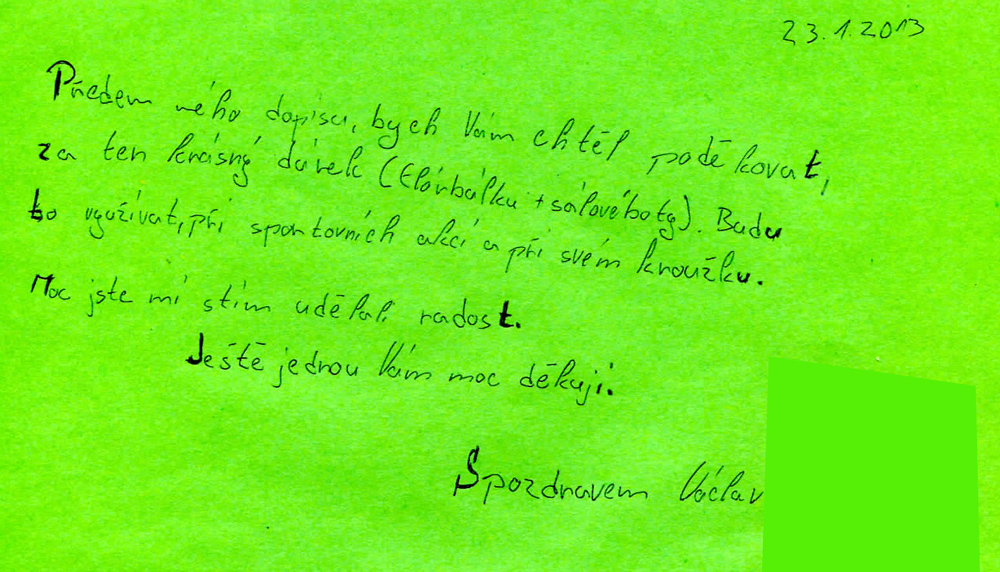 23.1.2013
Předem mého dopisu, bych Vám chtěl poděkovat,
za ten krásný dárek (flórbálku + sálovéboty). Budu
to využívat, při sportovních akcí a při svém kroužku.
Moc jste mi stím udělali radost.
Ještě jednou Vám moc děkuji.
Spozdravem Václav